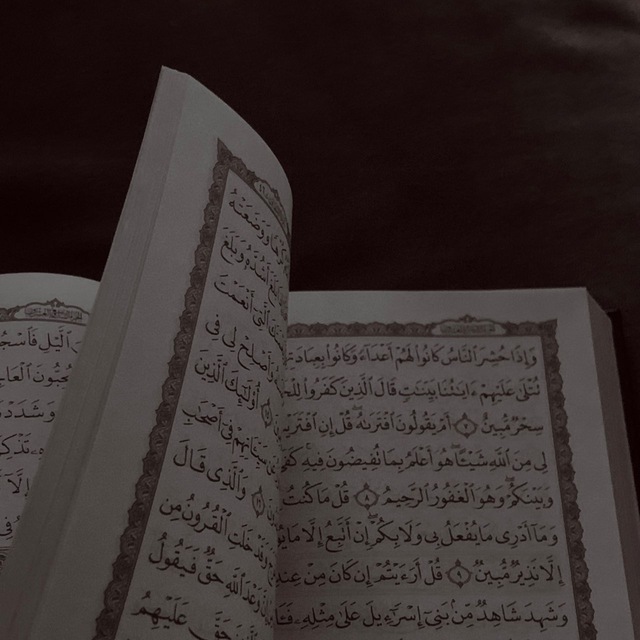 وَإِذَا حُشِرَ ٱلنَّاسُ كَانُوا۟ لَهُمْ أَعْدَآءً وَكَانُوا۟
تُتْلَىٰ عَلَيْهِمْ ءَايَٰتُنَا بَيِّنَٰتٍ قَالَ ٱلَّذِينَ كَفَرُوا۟
سِحْرٌ مُّبِينٌ ٧ أَمْ يَقُولُونَ ٱفْتَرَىٰهُ قُلْ إِنِ
لِى مِنَ ٱللَّهِ شَيْـًٔا هُوَ أَعْلَمُ بِمَا تُفِيضُونَ فِيهِ
وَبَيْنَكُمْ وَهُوَ ٱلْغَفُورُ ٱلرَّحِيمُ ٨ قُلْ مَا كُنتُ
وَمَآ أَدْرِى مَا يُفْعَلُ بِى وَلَا بِكُمْ إِنْ أَتَّبِعُ إِلَّا مَا
إِلَّا نَذِيرٌ مُّبِينٌ ٩ قُلْ أَرَءَيْتُمْ إِن كَانَ مِنْ عِندِ
وَشَهِدَ شَاهِدٌ مِّنۢ بَنِىٓ إِسْرَٰٓءِيلَ عَلَىٰ مِثْلِهِۦ
وَوَضَعَتْهُ
أَشُدَّهُۥ وَبَلَغَ
ٱلَّتِىٓ أَنْعَمْتَ
وَأَصْلِحْ لِى فِى
أُو۟لَٰٓئِكَ ٱلَّذِينَ
سَيِّـَٔاتِهِمْ فِىٓ أَصْحَٰبِ
وَٱلَّذِى قَالَ
وَقَدْ خَلَتِ ٱلْقُرُونُ مِن
وَعْدَ ٱللَّهِ حَقٌّ فَيَقُولُ
حَقَّ عَلَيْهِمُ
ٱلَّيْلِ فَٱسْجُدْ
يُحِبُّونَ
وَشَدَدْنَآ